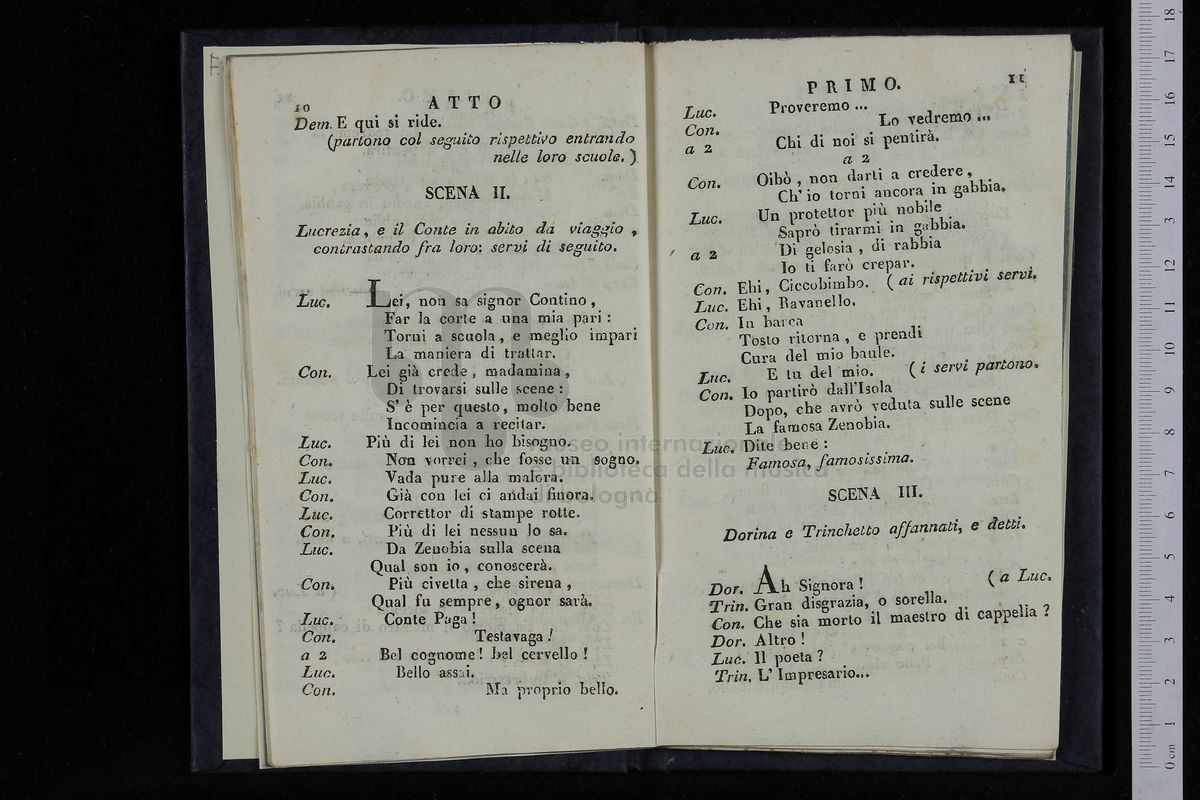 10
ATTO
Dem. E qui si ride.
(partono col seguito rispettivo entrando
nelle loro scuole.)
SCENA II.
Lucrezia, e il Conte in abito da viaggio,
contrastando fra loro: servi di seguito.
Luc. Lei, non sa signor Contino,
Far la corte a una mia pari:
Torni a scuola, e meglio impari
La maniera di trattar.
Con. Lei già crede, madamina,
Di trovarsi sulle scene:
S' è per questo, molto bene
Incomincia a recitar.
Luc. Più di lei non ho bisogno.
Con. Non vorrei, che fosse un sogno.
Luc. Vada pure alla malora.
Con. Già con lei ci andai finora.
Luc. Correttor di stampe rotte.
Con. Più di lei nessun lo sa.
Luc. Da Zenobia sulla scena
Qual son io, conoscerà.
Con. Più civetta, che sirena,
Qual fu sempre, ognor sarà.
Luc. Conte Paga!
Con. Testavaga!
a 2 Bel cognome! bel cervello!
Luc. Bello assai.
Con. Ma proprio bello.
PRIMO.
11
Luc. Proveremo ...
Con. Lo vedremo ...
a 2 Chi di noi si pentirà.
a 2
Con. Oibò, non darti a credere,
Ch' io torni ancora in gabbia.
Luc. Un protettor più nobile
Saprò tirarmi in gabbia.
a 2 Di gelosia, di rabbia
Io ti farò crepar.
Con. Ehi, Ciccobimbo. (ai rispettivi servi.
Luc. Ehi, Ravanello.
Con. In barca
Tosto ritorna, e prendi
Cura del mio baule.
Luc. E tu del mio. (i servi partono.
Con. Io partirò dall'Isola
Dopo, che avrò veduta sulle scene
La famosa Zenobia.
Luc. Dite bene:
Famosa, famosissima.
SCENA III.
Dorina e Trinchetto affannati, e detti.
Dor. Ah Signora! (a Luc.
Trin. Gran disgrazia, o sorella.
Con. Che sia morto il maestro di cappella?
Dor. Altro!
Luc. Il poeta?
Trin. L' Impresario...
museo internazionale
e biblioteca della musica
di bologna
0 cm 1 2 3 4 5 6 7 8 9 10 11 12 13 14 15 16 17 18